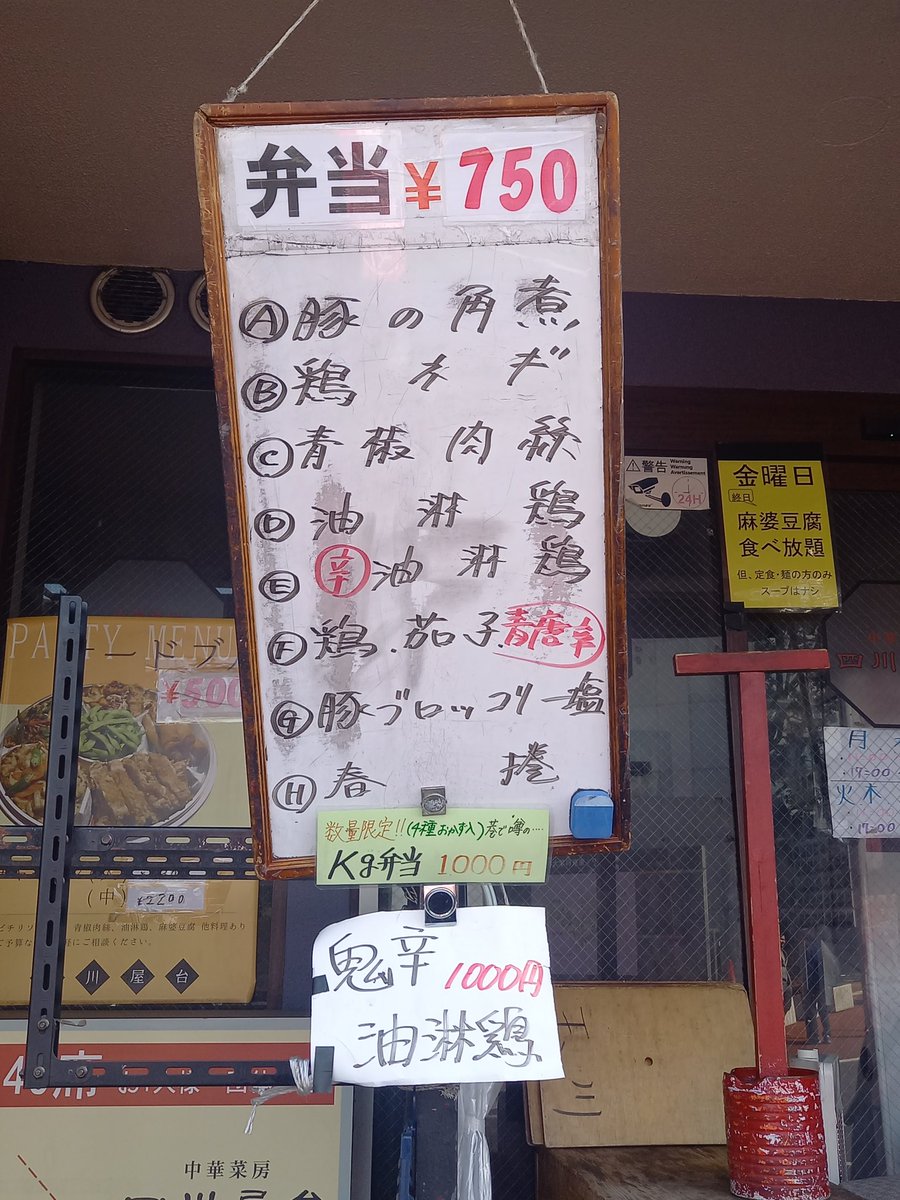 弁当 ¥750
Ⓐ豚の角煮
Ⓑ鶏ネギ
Ⓒ青椒肉絲
Ⓓ油淋鶏
Ⓔ辛油淋鶏
Ⓕ鶏.茄子.青唐辛
Ⓖ豚ブロッコリー塩
Ⓗ春捲
数量限定!!(4種おかず入)巷で噂の....
Kg弁当 1000円
鬼辛 1000円
油淋鶏
警告
Warning
Warnung
Avertissement
24H
金曜日
終日
麻婆豆腐
食べ放題
但、定食・麺の方のみ
スープはナシ
四川
月
17:00
火木
17:00
PARTY MENU
ードブ
¥500
(中)
青椒肉絲、油淋鶏、麻婆豆腐 他料理あり
軽にご相談ください。
川屋台
席
中華菜房